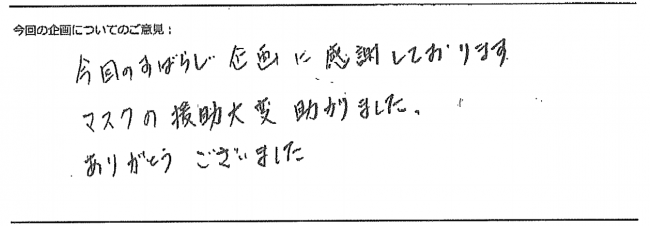 今回の企画についてのご意見：
今回のすばらしい企画に感謝しております
マスクの援助大変助かりました。
ありがとうございました